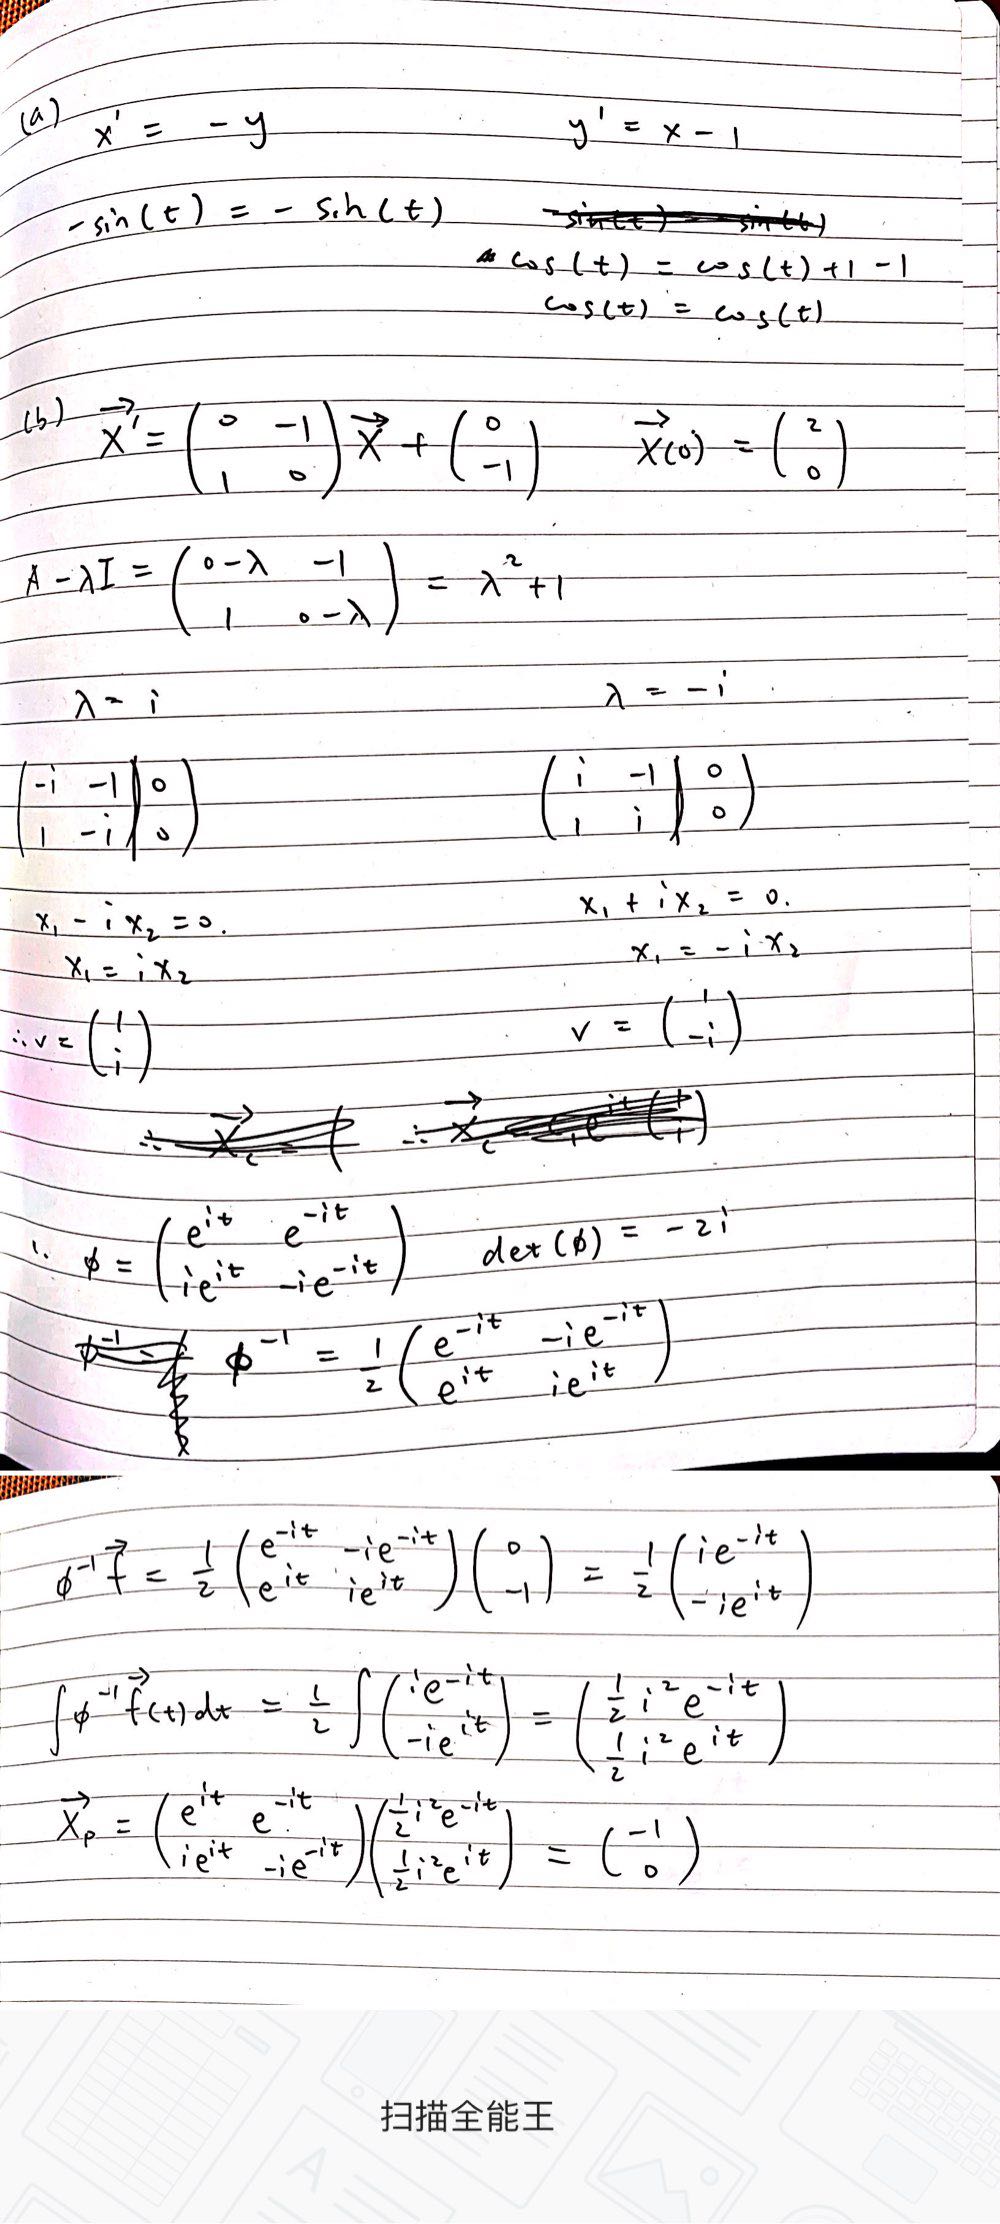 (a) x' = -y y' = x - 1
-sin(t) = - sin(t) -sin(t) = sin(t)
cos(t) = cos(t) + 1 - 1
cos(t) = cos(t)
(b) X⃗' = (0 -1; 1 0) X⃗ + (0; -1) X⃗(0) = (2; 0)
A - λI = (0-λ -1; 1 0-λ) = λ² + 1
λ = i λ = -i
(-i -1 | 0; 1 -i | 0) (i -1 | 0; 1 i | 0)
x₁ - i x₂ = 0. x₁ + i x₂ = 0.
x₁ = i x₂ x₁ = -i x₂
∴ v = (1; i) v = (1; -i)
∴ X⃗c = ( ∴ X⃗c = c₁e^{it} (1; i)
∴ ϕ = (e^{it} e^{-it}; ie^{it} -ie^{-it}) det(ϕ) = -2i
ϕ^{-1} = ϕ^{-1} = 1/2 (e^{-it} -ie^{-it}; e^{it} ie^{it})
ϕ^{-1} f⃗ = 1/2 (e^{-it} -ie^{-it}; e^{it} ie^{it}) (0; -1) = 1/2 (ie^{-it}; -ie^{it})
∫ ϕ^{-1} f⃗(t) dt = 1/2 ∫ (ie^{-it}; -ie^{it}) = (1/2 i² e^{-it}; 1/2 i² e^{it})
X⃗p = (e^{it} e^{-it}; ie^{it} -ie^{-it}) (1/2 i² e^{-it}; 1/2 i² e^{it}) = (-1; 0)
扫描全能王